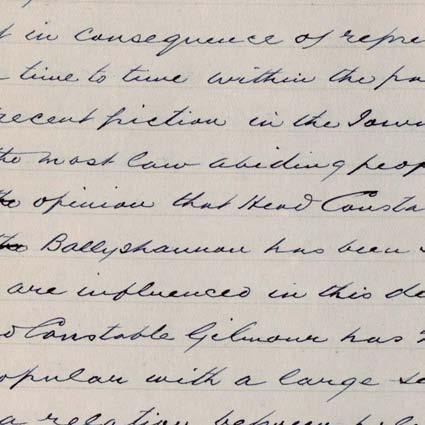 in consequence of repre
time to time within the pa
recent friction in the Town
the most law abiding peop
the opinion that Head Consta
the Ballyshannon has been
are influenced in this de
Constable Gilmour has
opular with a large se
a relation between